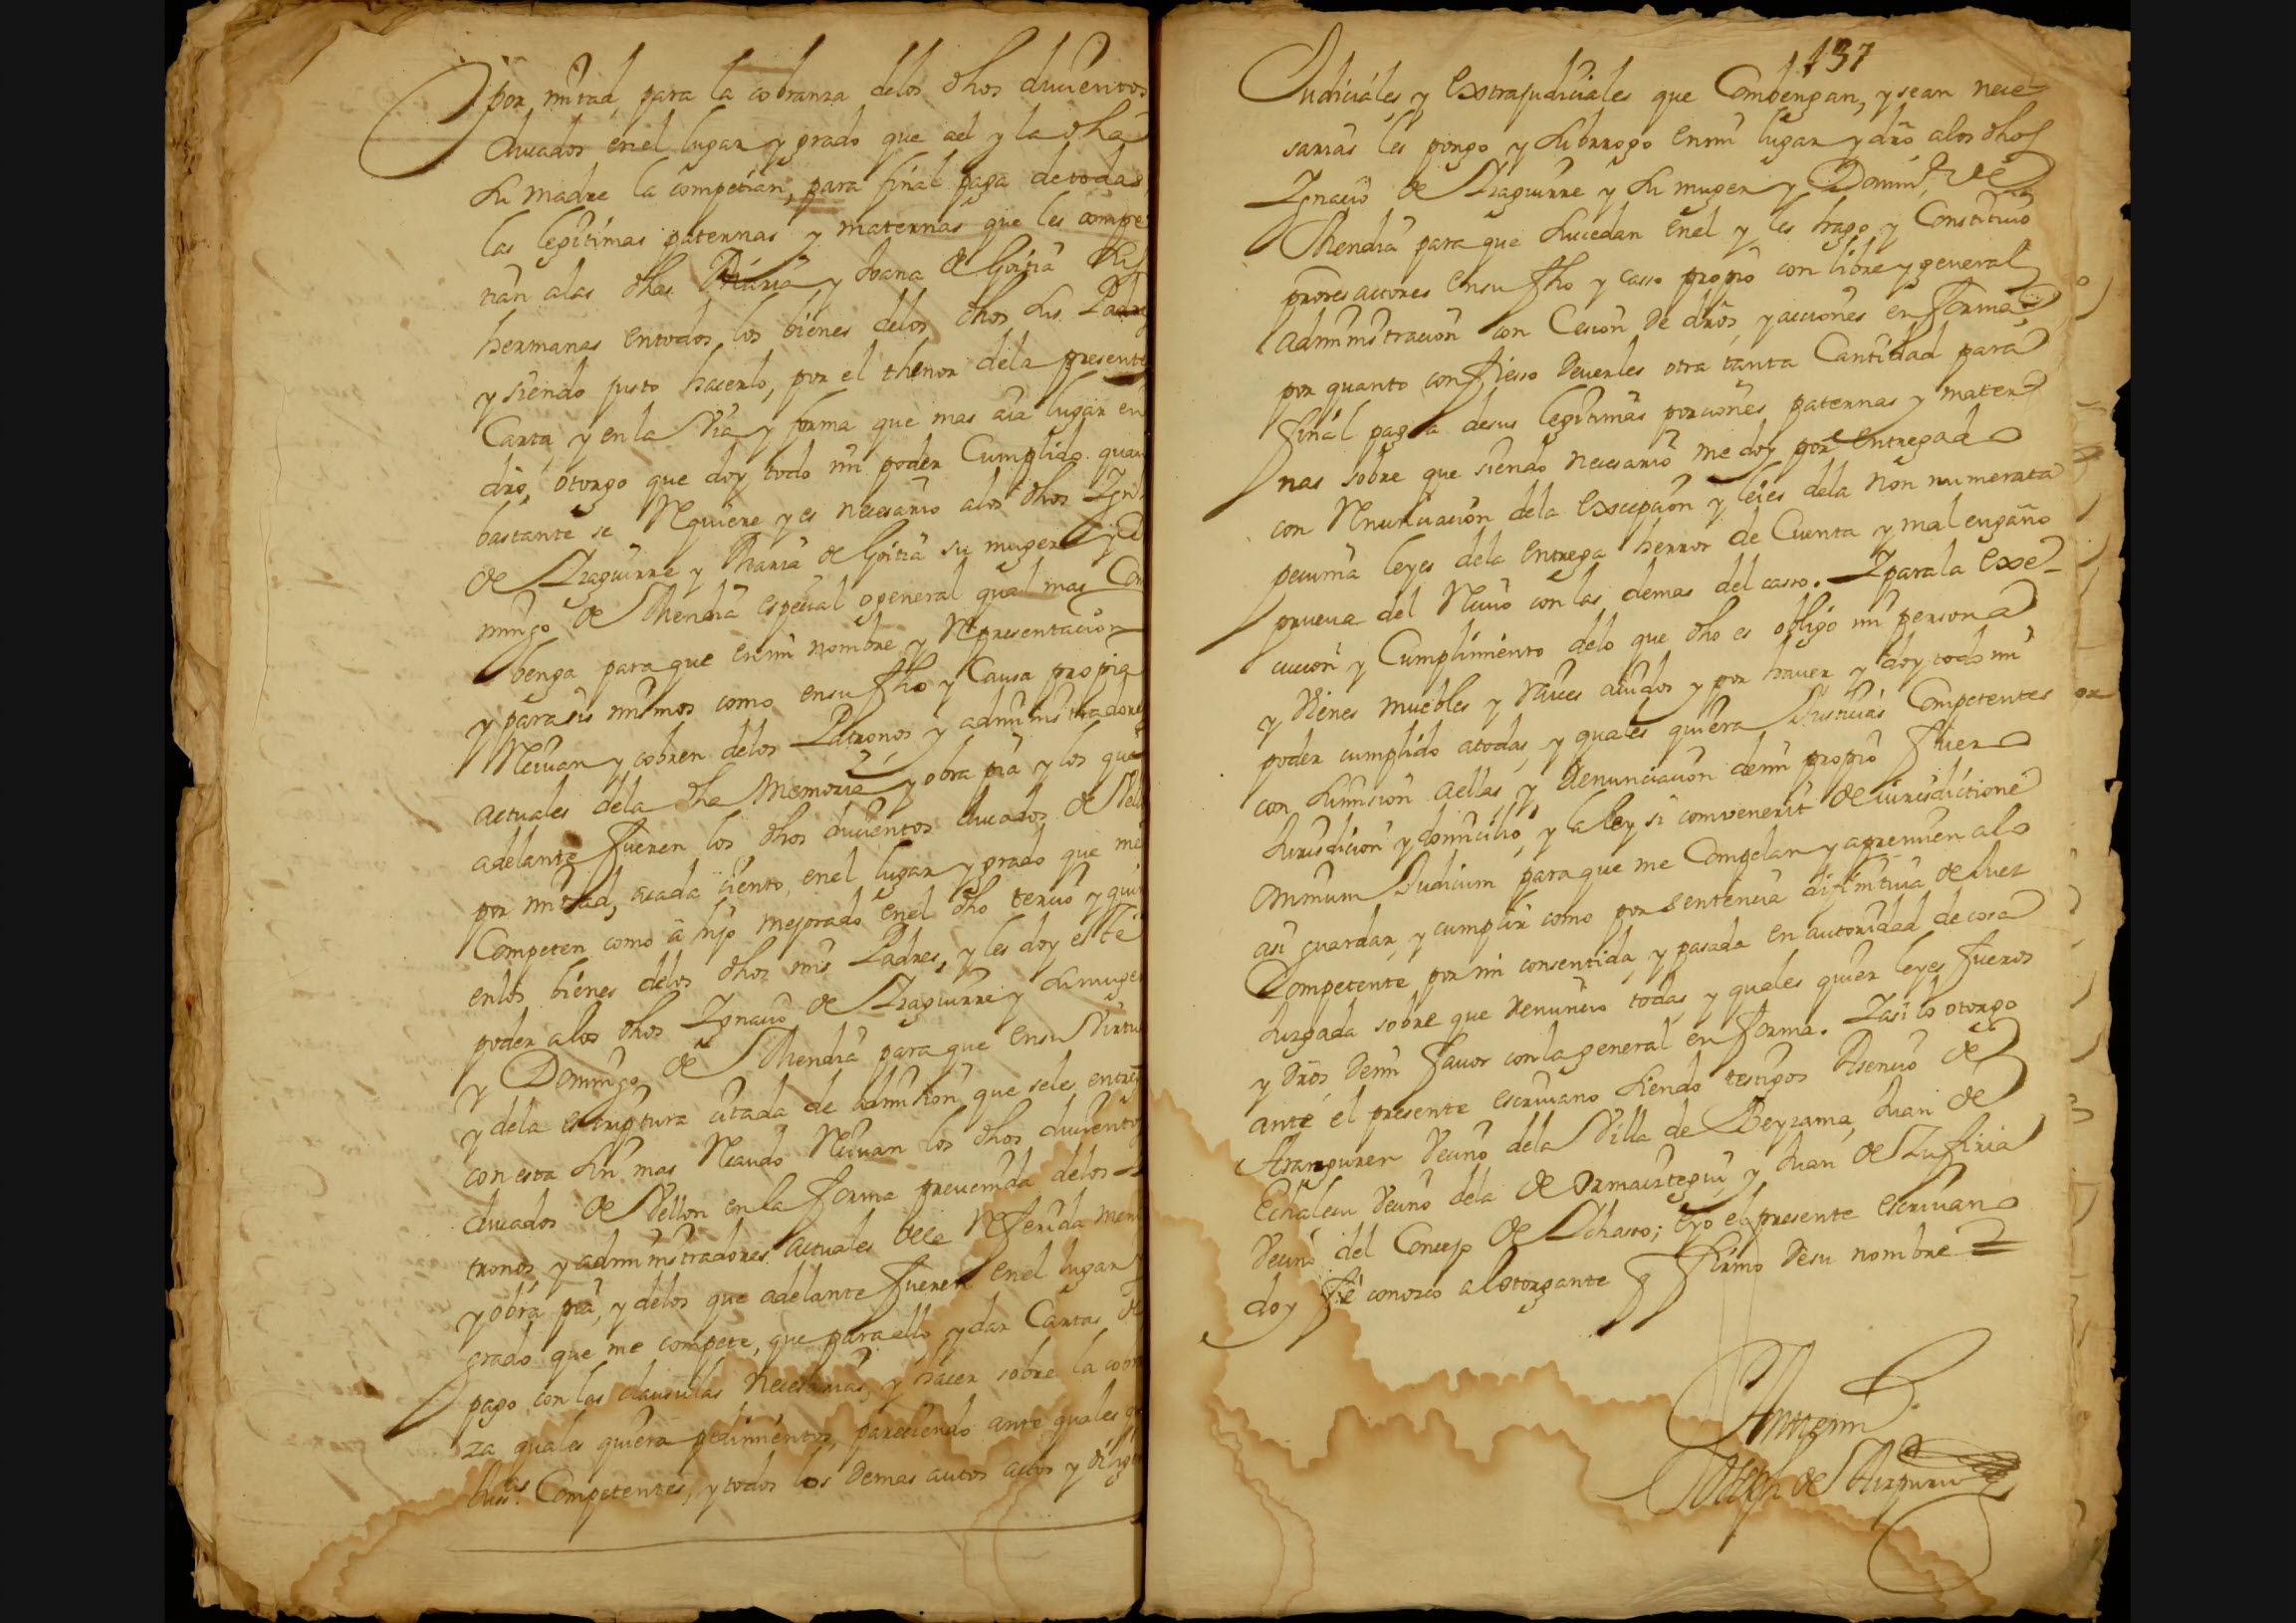 por mitad, para la cobranza delos dhos ducientos
ducados enel lugar y grado que ael y la dha
su madre la competian, para final paga detodas
las legitimas paternas y maternas que les compe
tian alas dhas Maria y Joana de Goitia sus
hermanas entodos los bienes delos dhos sus Padres
y siendo justo hacerlo, por el thenor dela presente
Carta y enla via y forma que mas aia lugar en
dro, otorgo que doy todo mi poder Cumplido quan
bastante se Requiere y es necesario alos dhos Ign
de Izaguirre y Maria de Goitia su muger y Do
mingo de Mendia especial o general qual mas Con
benga para que enmi nombre y Representacion
y parasis mismos como ensu fho y Causa propia
Reciuan y cobren delos Patronos y administradores
actuales dela dha Memoria y obra pia y los que
adelante fueren los dhos ducientos ducados de Vell
por mitad, acada ciento, enel lugar y grado que me
Competen como a hijo mejorado enel dho tercio y qui
enlos bienes delos dhos mis Padres, y les doy este
poder alos dhos Ignacio de Izaguirre y su muger
y Domingo de Mendia para que ensu Virtu
y dela escriptura citada de admision que seles entre
con esta sin mas Recaudo Reciuan los dhos ducientos
ducados de Vellon enla forma preuenida delos
tronos y administradores actuales dela Referida mem
y obra pia, y delos que adelante fueren enel lugar y
grado que me compete, que para ello y dar Cartas de
pago con las clausulas necesarias, y hacer sobre la cobr
za quales quiera pedimientos, paresciendo ante quales qu
Juss.as Competentes, y todos los demas autos actos y dilig
137
Judiciales y Extrajudiciales que Combengan, y sean nece-
sarias les pongo y subrrogo enmi lugar y dro alos dhos
Ignacio de Izaguirre y su muger y Doming.o de
Mendia para que sucedan enel y les hago y Constituio
prores actores ensu fho y casso propio con libre y general
administracion con Cesion de dros, y acciones en forma
por quanto confiesso deuerles otra tanta Cantidad para
final pagaa desus legitimas porciones paternas y mater
nas sobre que siendo necesario me doy por entregado
con Renunciacion dela excepcion y leies dela non numerata
pecunia leyes dela entrega herror de Cuenta y mal engaño
prueua del Reciuo con las demas del casso. Y para la exe-
cucion y Cumplimiento delo que dho es obligo mi persona
y Vienes muebles y raices auidos y por hauer y doy todo mi
poder cumplido atodas, y quales quiera Justicias Competentes
con sumision aellas, y Renunciacion demi propio fuero
Jurisdicion y domicilio, y la ley si convenerit de iurisdictione
omnium Judicum para que me Compelan y apremien alo
asi guardar, y cumplir como por sentencia difinitiua de Juez
Competente por mi consentida y pasada en autoridad de cosa
Juzgada sobre que Renuncio todas, y quales quier leyes fueros
y dros demi fauor con la general en forma. Y asi lo otorgo
ante el presente escriuano siendo testigos Asencio de
Aranguren Vecino dela Villa de Beyzama, Juan de
Echalecu Vecino dela de Ormaiztegui, y Juan de Zufiria
Vecino del Concejo de Ichasso; Eyo el presente escriuano
doy fe conozco al otorgante y firmo desu nombre
Antemi
Joseph de